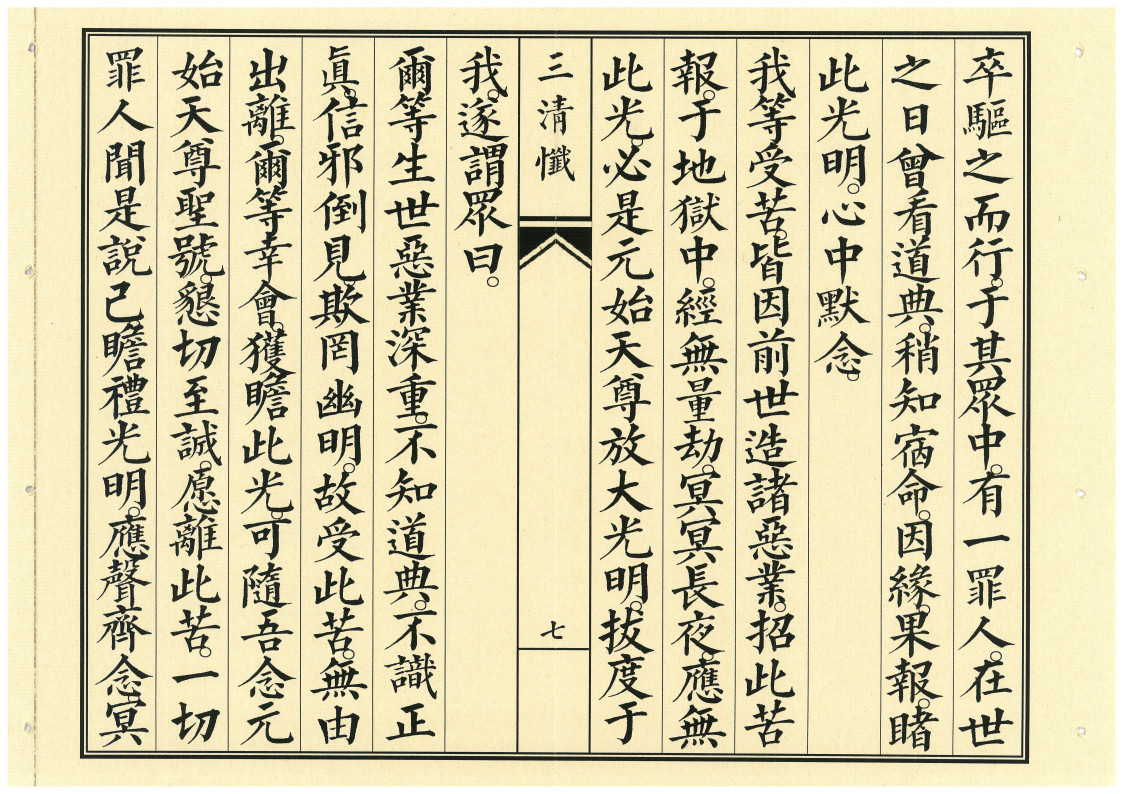 卒驅之而行。于其眾中。有一罪人。在世
之日曾看道典。稍知宿命。因緣。果報。睹
此光明。心中默念。
我等受苦。皆因前世造諸惡業。招此苦
報。于地獄中。經無量劫。冥冥長夜。應無
此光。必是元始天尊放大光明。拔度于
三清懺
七
我。遂謂眾曰。
爾等生世惡業深重。不知道典。不識正
眞。信邪倒見。欺罔幽明。故受此苦。無由
出離。爾等幸會。獲瞻此光。可隨吾念元
始天尊聖號。懇切至誠。愿離此苦。一切
罪人聞是說已瞻禮光明。應聲齊念。冥